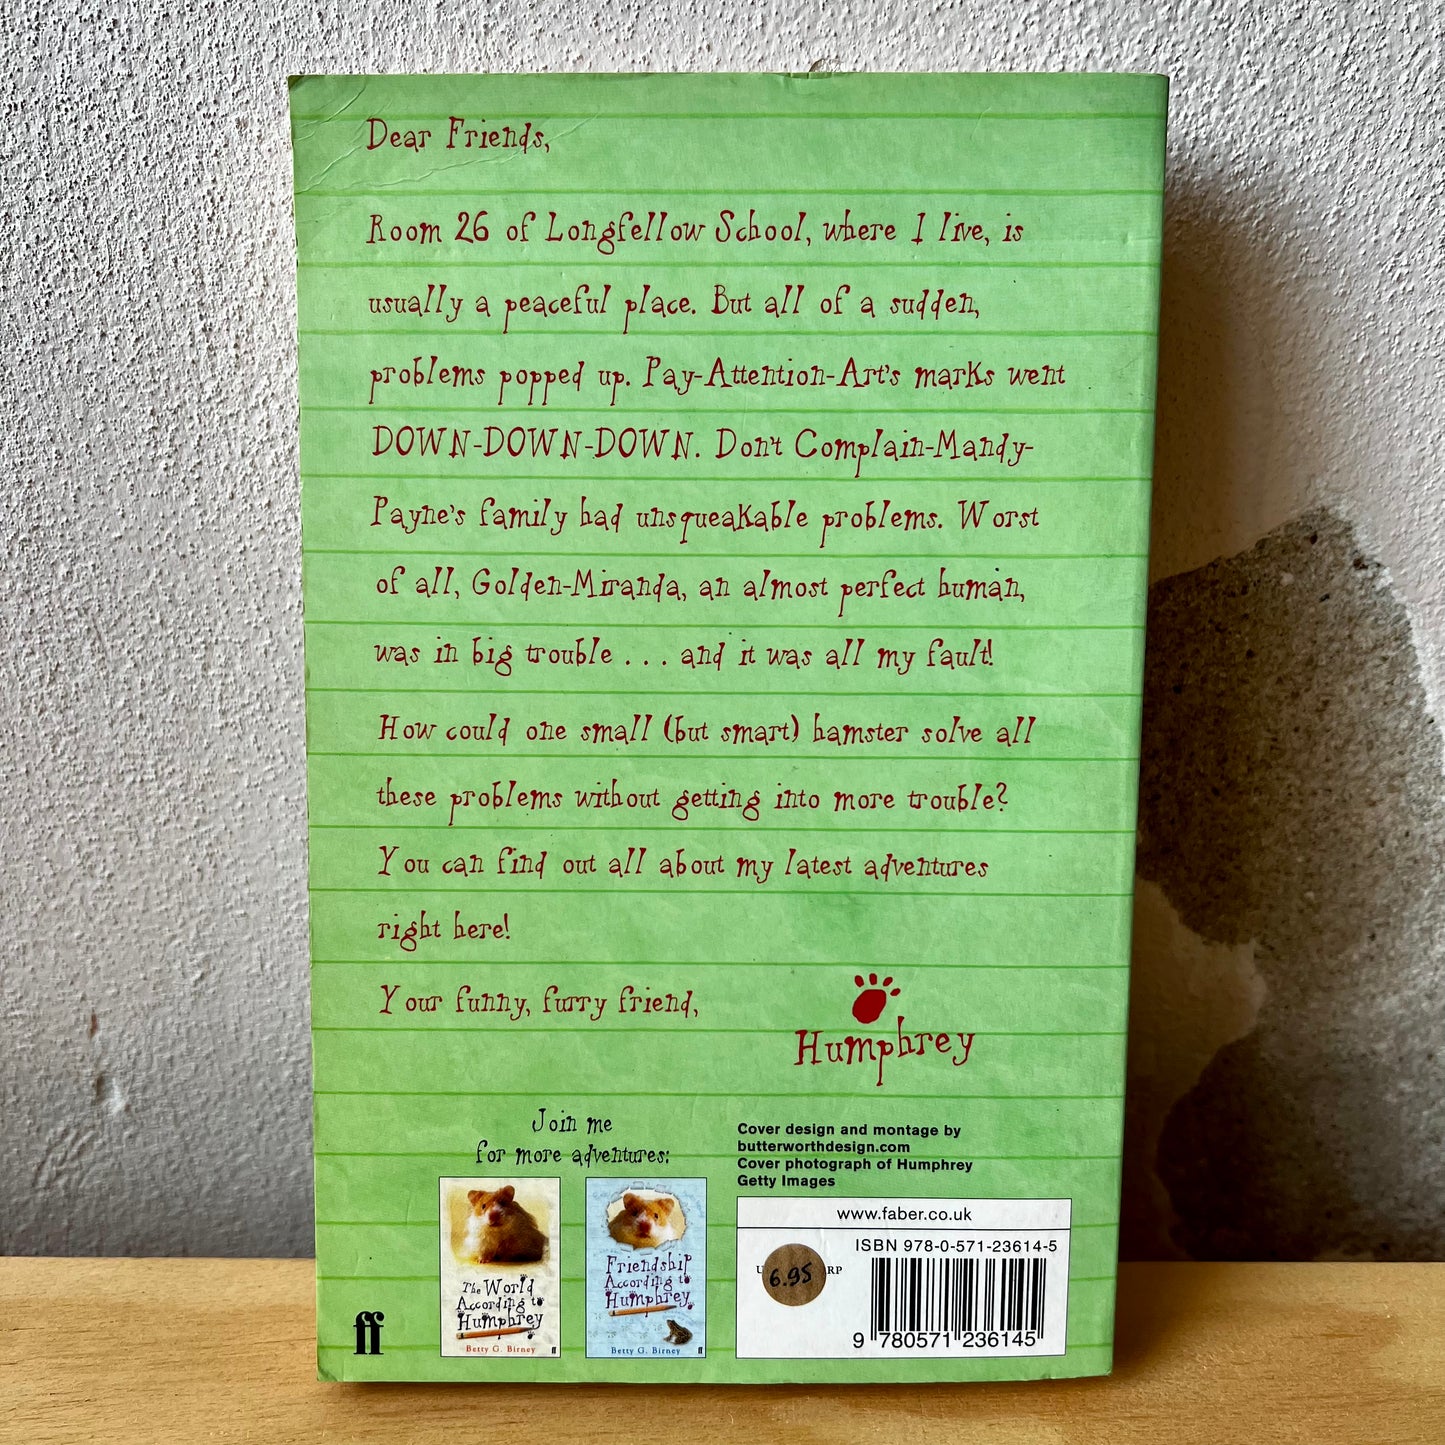 Dear Friends,
Room 26 of Longfellow School, where I live, is
usually a peaceful place. But all of a sudden,
problems popped up. Pay-Attention-Art's marks went
DOWN-DOWN-DOWN. Don't Complain-Mandy-
Payne's family had unsqueakable problems. Worst
of all, Golden-Miranda, an almost perfect human,
was in big trouble . . . and it was all my fault!
How could one small (but smart) hamster solve all
these problems without getting into more trouble?
You can find out all about my latest adventures
right here!
Your funny, furry friend,
Humphrey
Join me
for more adventures:
The World
According to
Humphrey
Betty G. Birney
ff
Friendship
According to
Humphrey
Betty G. Birney
ff
ff
Cover design and montage by
butterworthdesign.com
Cover photograph of Humphrey
Getty Images
www.faber.co.uk
ISBN 978-0-571-23614-5
6.95
RP
9 780571 236145